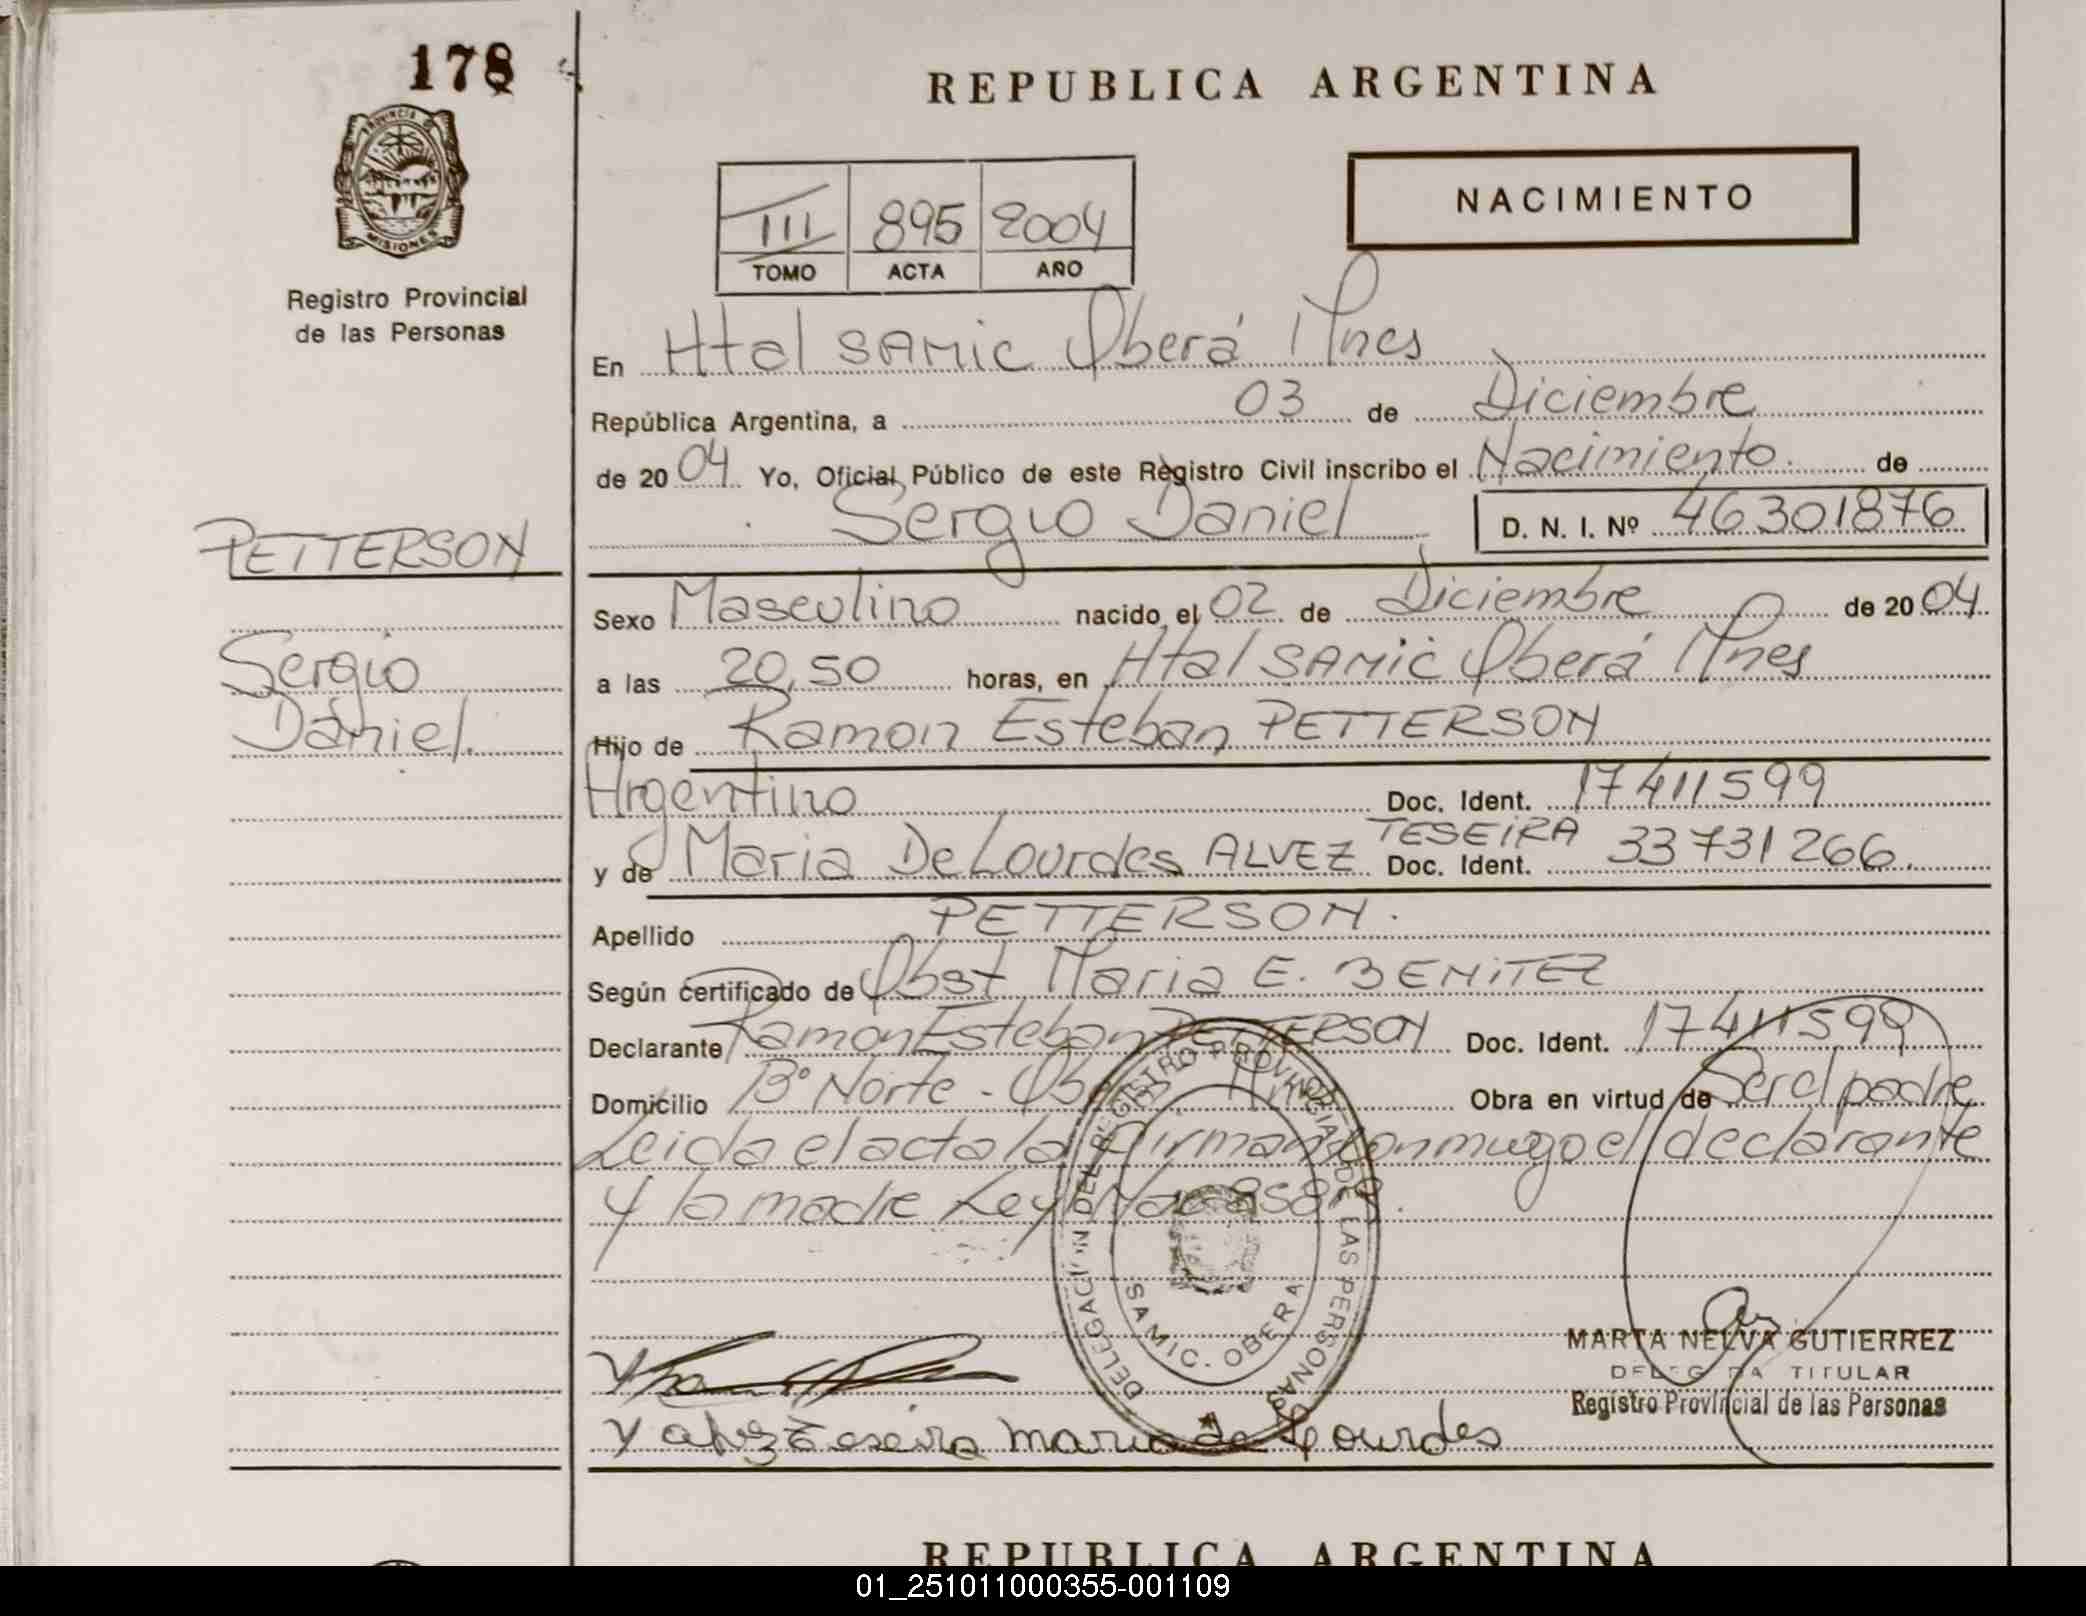 178
PROVINCIA DE
MISIONES
Registro Provincial
de las Personas
PETTERSON
Sergio
Daniel.
REPUBLICA ARGENTINA
III 895 2004
TOMO ACTA AÑO
NACIMIENTO
En Htal SAMIC Oberá Mnes
República Argentina, a 03 de Diciembre
de 2004 Yo, Oficial Público de este Registro Civil inscribo el Nacimiento de
Sergio Daniel D. N. I. Nº 46301876
Sexo Masculino nacido el 02 de Diciembre de 2004
a las 20,50 horas, en Htal SAMIC Oberá Mnes
Hijo de Ramon Esteban PETTERSON
Argentino Doc. Ident. 17411599
y de Maria De Lourdes ALVEZ TESEIRA Doc. Ident. 33731266.
Apellido PETTERSON.
Según certificado de Obst Maria E. BENITEZ
Declarante Ramon Esteban PETTERSON Doc. Ident. 17411599
Domicilio Bº Norte - Oberá Mnes Obra en virtud de Ser el padre
Leida el acta la firman conmigo el declarante
y la madre Ley
DELEGACION DEL REGISTRO PROVINCIAL DE LAS PERSONAS
SAMIC. OBERA
MARTA NELVA GUTIERREZ
DELEGADA TITULAR
Registro Provincial de las Personas
Alvez Teseira Maria de Lourdes
REPUBLICA ARGENTINA
01_251011000355-001109